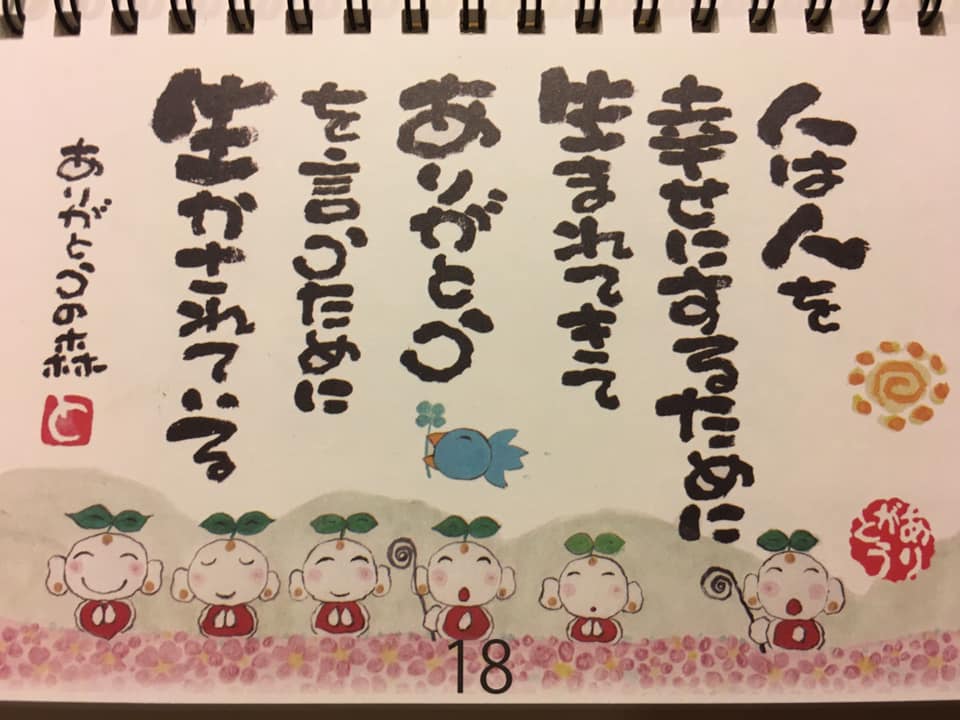 人は人を
幸せにするために
生まれてきて
ありがとう
を言うために
生かされている
ありがとうの森
と
ありがとう
18